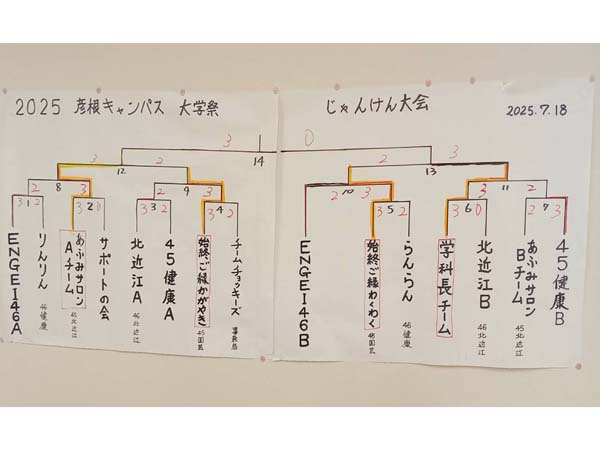 2025 彦根キャンパス 大学祭 じゃんけん大会 2025.7.18
3 0
14
3 2 2 3
12 13
2 3 2 3 2 3 3 2
8 9 10 11
3 1 2 3 2 0 3 3 2 3 4 2 3 5 2 3 6 0 2 7 3
ENGEI46A
りんりん 46健康
あぶみサロンAチーム 45北近江
サポートの会
北近江A 46北近江
45健康A
始終ご縁かがやき 45園芸
チームチョッキーズ 事務局
ENGEI46B
始終ご縁わくわく 45園芸
らんらん 46健康
学科長チーム
北近江B 46北近江
あぶみサロンBチーム 45北近江
45健康B